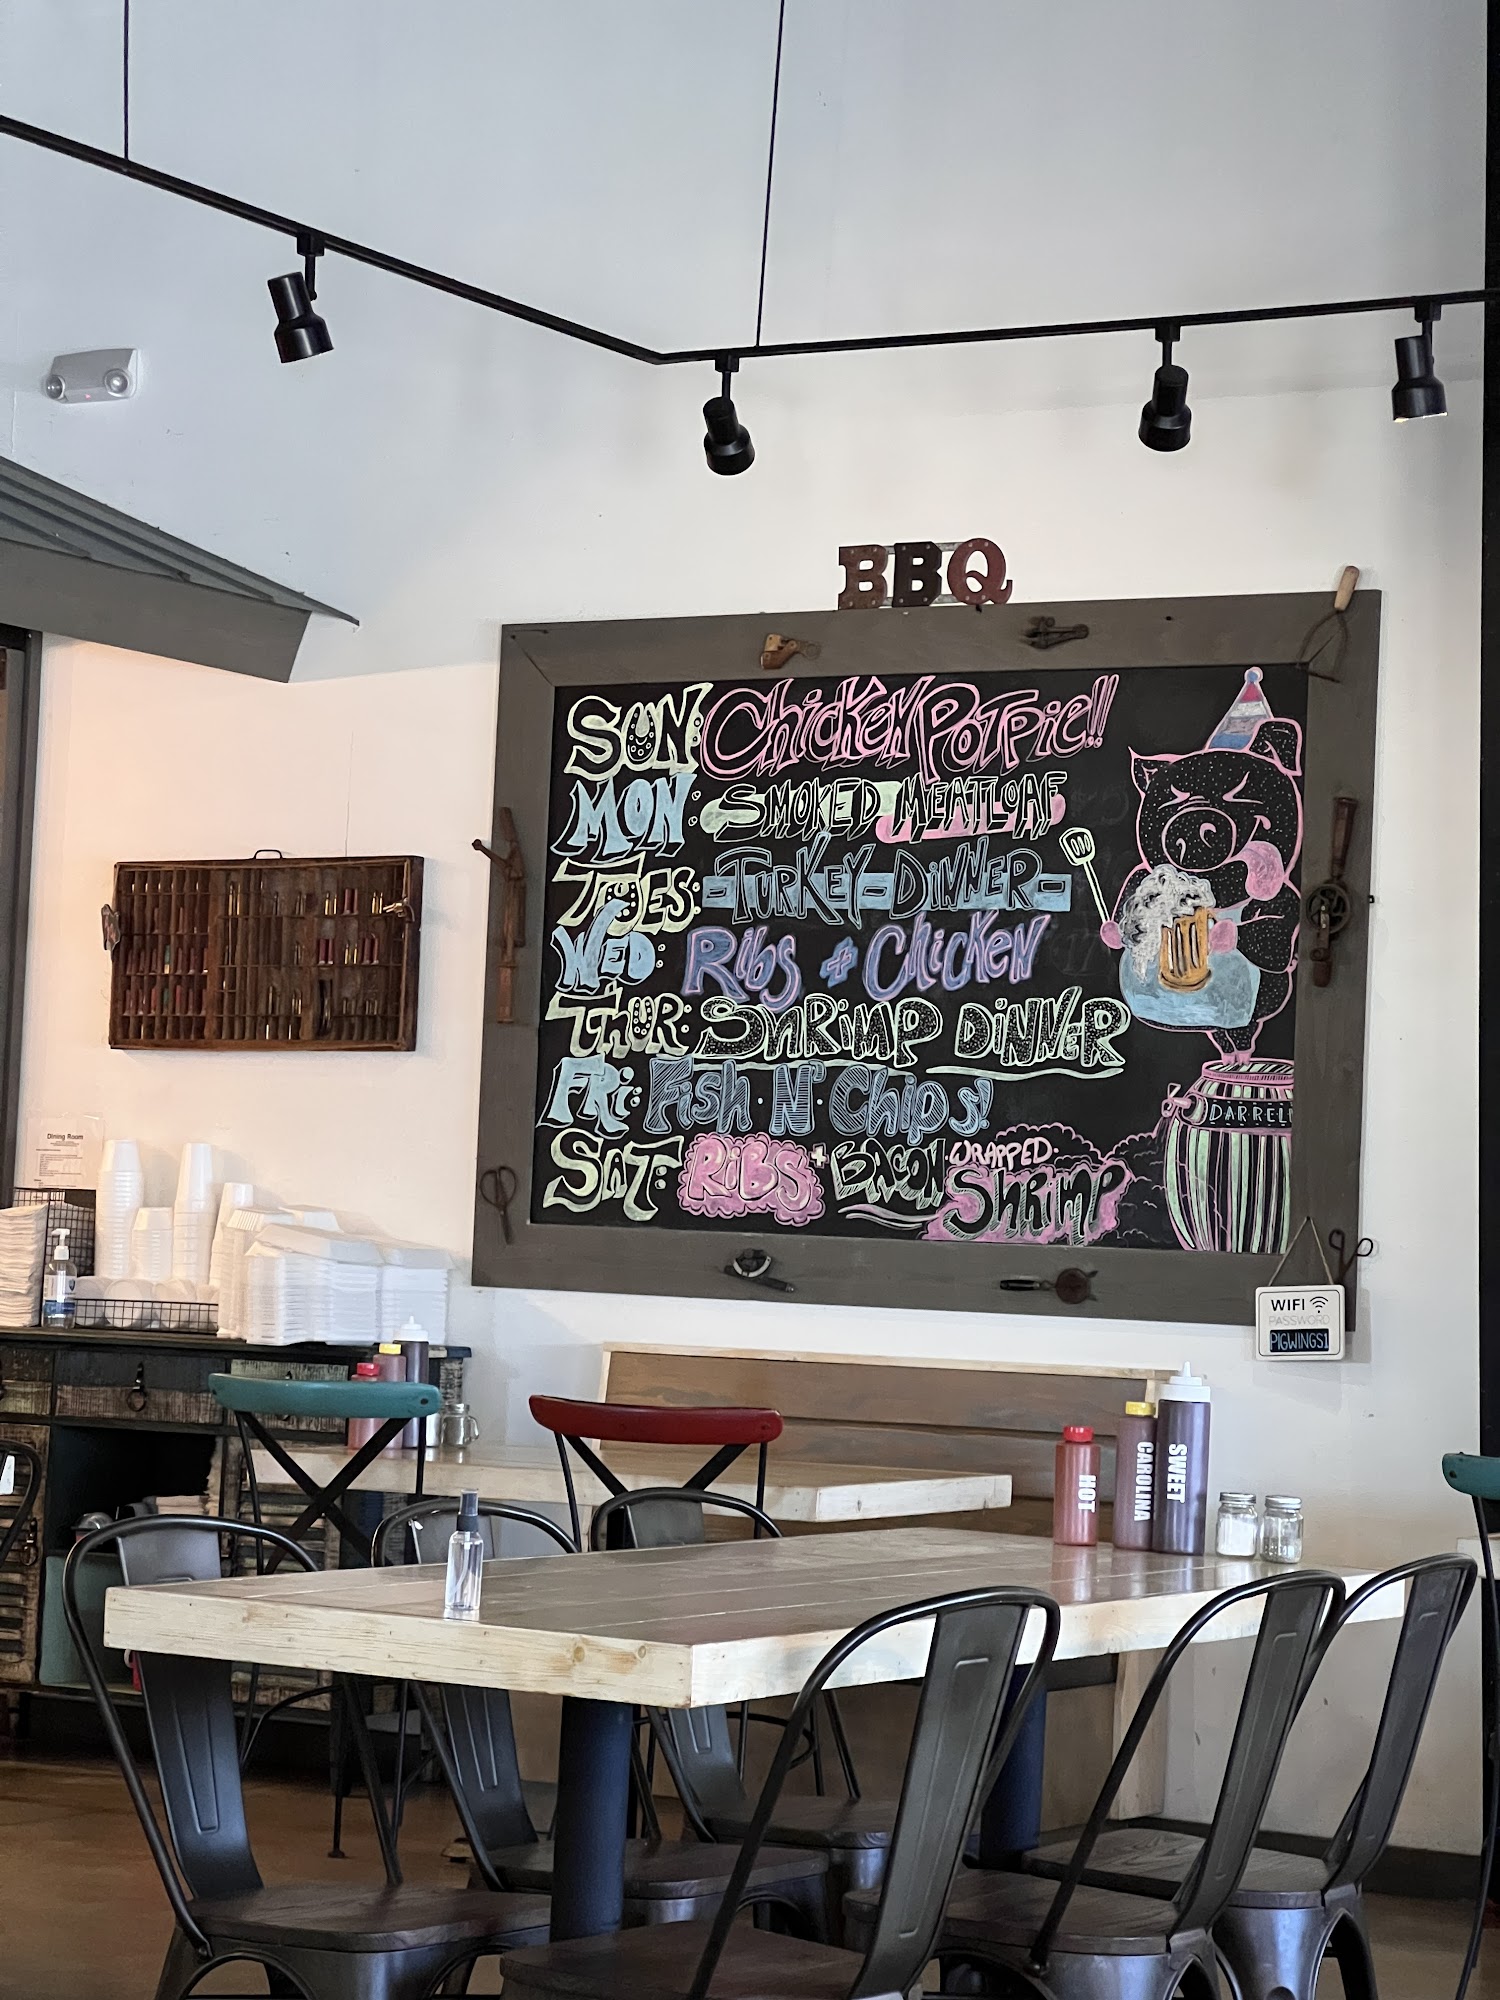 BBQ
SUN: Chicken Pot Pie!!
MON: SMOKED MEATLOAF
TUES: -TURKEY-DINNER-
WED: Ribs + Chicken
THUR: SHRIMP DINNER
FRI: Fish·N'·Chips!
SAT: RiBS + BACON WRAPPED· SHRIMP
DARRELL
Dining Room
WIFI
PASSWORD
PIGWINGS1
HOT
CAROLINA
SWEET